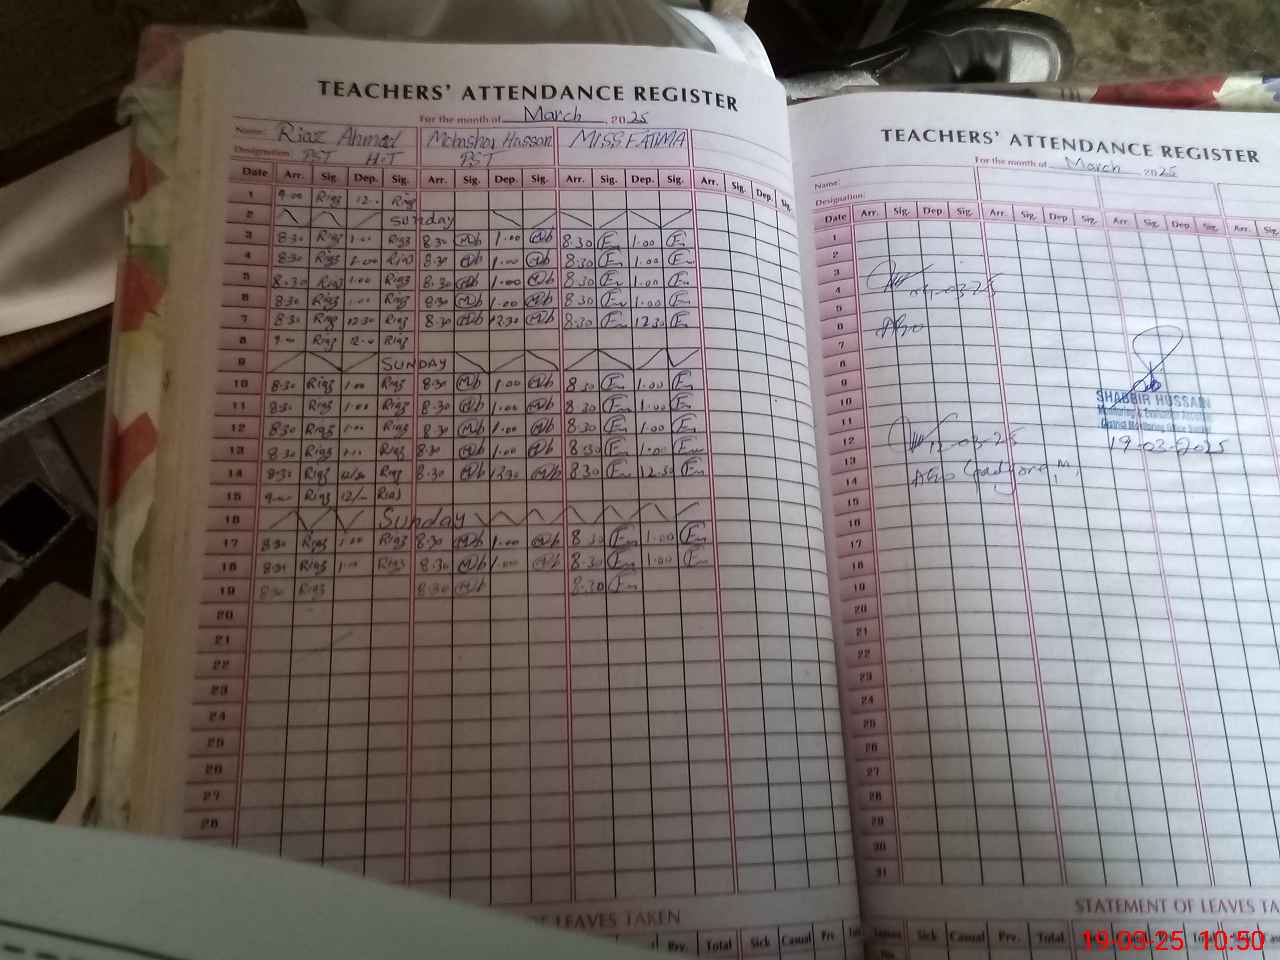 TEACHERS' ATTENDANCE REGISTER
For the month of March, 2025
Name: Riaz Ahmed Mobashar Hassan MISS FATIMA
Designation PST H.T PST
Date Arr. Sig. Dep. Sig. Arr. Sig. Dep. Sig. Arr. Sig. Dep. Sig. Arr. Sig. Dep. Sig.
1 9.00 Riaz 12.. Riaz
2 Sunday
3 8:30 Riaz 1.00 Riaz 8.30 1.00 8.30 1.00
4 8:30 Riaz 1.00 Riaz 8.30 1.00 8.30 1.00
5 8.30 Riaz 1.00 Riaz 8.30 1.00 8.30 1.00
6 8:30 Riaz 1.00 Riaz 8.30 1.00 8.30 1.00
7 8:30 Riaz 12:30 Riaz 8.30 12.30 8.30 12.30
8 9.00 Riaz 12.. Riaz
9 SUNDAY
10 8:30 Riaz 1.00 Riaz 8.30 1.00 8.30 1.00
11 8:30 Riaz 1.00 Riaz 8.30 1.00 8.30 1.00
12 8:30 Riaz 1.00 Riaz 8.30 1.00 8.30 1.00
13 8:30 Riaz 1.. Riaz 8.30 1.00 8.30 1.00
14 8:30 Riaz 12/30 Riaz 8.30 12.30 8.30 12.30
15 9.00 Riaz 12/.. Riaz
16 Sunday
17 8:30 Riaz 1.00 Riaz 8.30 1.00 8.30 1.00
18 8:30 Riaz 1.00 Riaz 8.30 1.00 8.30 1.00
19 8:30 Riaz 8.30 8.30
20
21
22
23
24
25
26
27
28
OF LEAVES TAKEN
Prv. Total
TEACHERS' ATTENDANCE REGISTER
For the month of March 2025
Name:
Designation:
Date Arr. Sig. Dep Sig. Arr. Sig. Dep. Sig. Arr. Sig. Dep. Sig. Arr. Sig.
1
2
3
4
5
6
7
8
9
10
11
12
13
14
15
16
17
18
19
20
21
22
23
24
25
26
27
28
29
30
31
SHABBIR HUSSAIN
Monitoring & Evaluation
District Monitoring Office
19-03-2025
12-03-25
STATEMENT OF LEAVES TA
Sick Casual Prv. Total Sick Casual Prv.
19-03-25 10:50